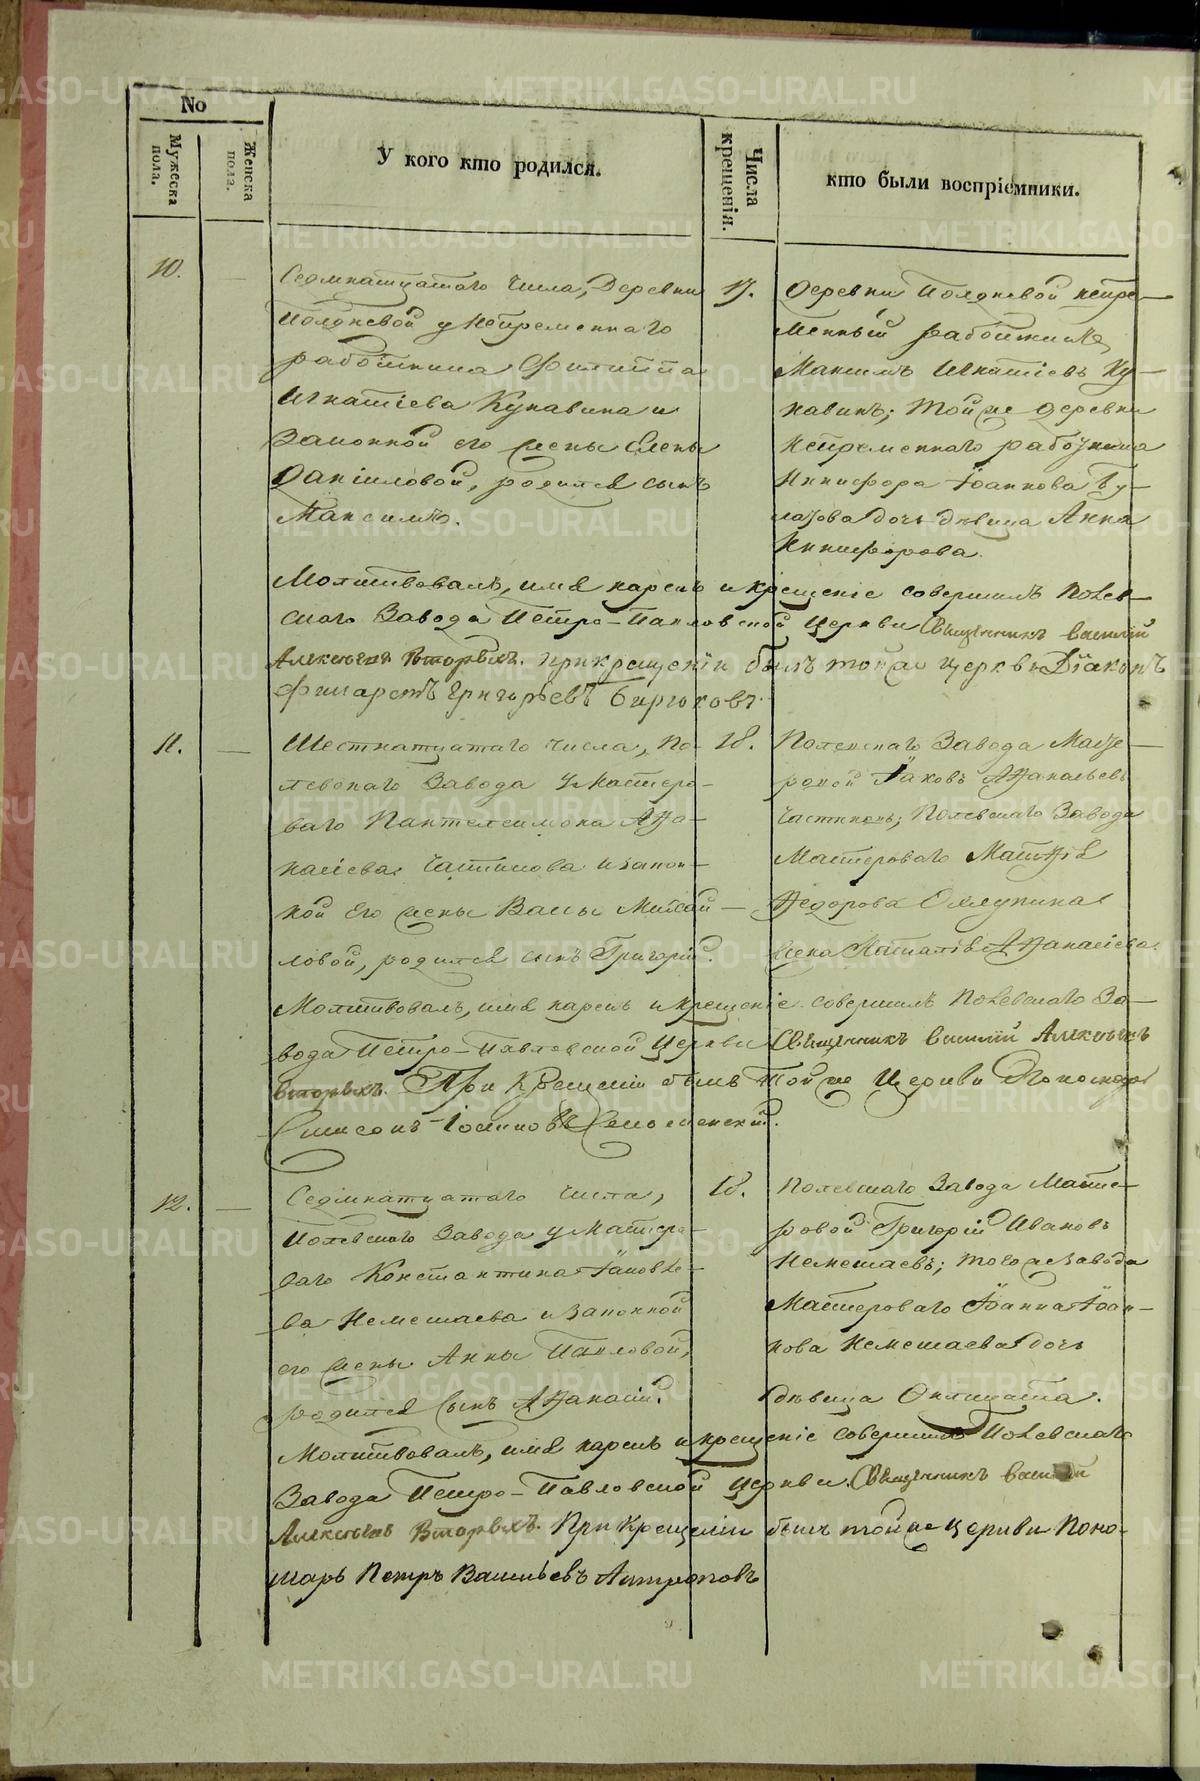 No
Мужеска пола.
Женска пола.
У кого кто родился.
Числа крещенія.
кто были воспріемники.
10.
Седмнатцатого числа, Деревни
Полдневой у Непременнаго
работника Филиппа
Игнатіева Кунавина и
Законной его жены Елены
Даніиловой, родился сынъ
Максимъ.
17.
Деревни Полдневой непре-
менный работникъ
Максимъ Игнатіевъ Ку-
навинъ; той же деревни
непременнаго работника
Никифора Іоаннова
дочь девица Анна
Никифорова.
Молитвовалъ, имя нарекъ и крещеніе совершилъ Полев-
скаго Завода Петро-Павловской Церкви Священникъ Василій
Алексѣевъ Вторыхъ. При крещеніи былъ тойже церкви Діаконъ
Филаретъ Григорьевъ Бирюковъ.
11.
Шестнатцатаго числа, По-
левскаго Завода у Мастеро-
ваго Пантелеимона Афа-
насіева Частикова и закон-
ной его жены Вассы Михай-
ловой, родился сынъ Григорій.
18.
Полевскаго Завода Масте-
ровой Іаковъ Афанасьевъ
Полевскаго Завода
Мастероваго Матфія
Федорова
жена Афанасіева.
Молитвовалъ, имя нарекъ и крещеніе совершилъ Полевскаго За-
вода Петро-Павловской Церкви Священникъ Василій Алексѣевъ
Вторыхъ. При Крещеніи былъ Той же Церкви Пономарь
Симеонъ Іоанновъ
12.
Седмнатцатаго числа,
Полевскаго Завода у Мастеро-
ваго Константина Іаковле-
ва Немешаева и Законной
его жены Анны Павловой,
родился Сынъ Афанасій.
18.
Полевскаго Завода Масте-
ровой Григорій Ивановъ
Немешаевъ; тогоже завода
Мастероваго Іоанна Іоан-
нова Немешаева дочь
девица
Молитвовалъ, имя нарекъ и крещеніе совершилъ Полевскаго
Завода Петро-Павловской Церкви Священникъ Василій
Алексѣевъ Вторыхъ. При Крещеніи былъ тойже церкви Поно-
марь Петръ Васильевъ Антроповъ
METRIKI.GASO-URAL.RU